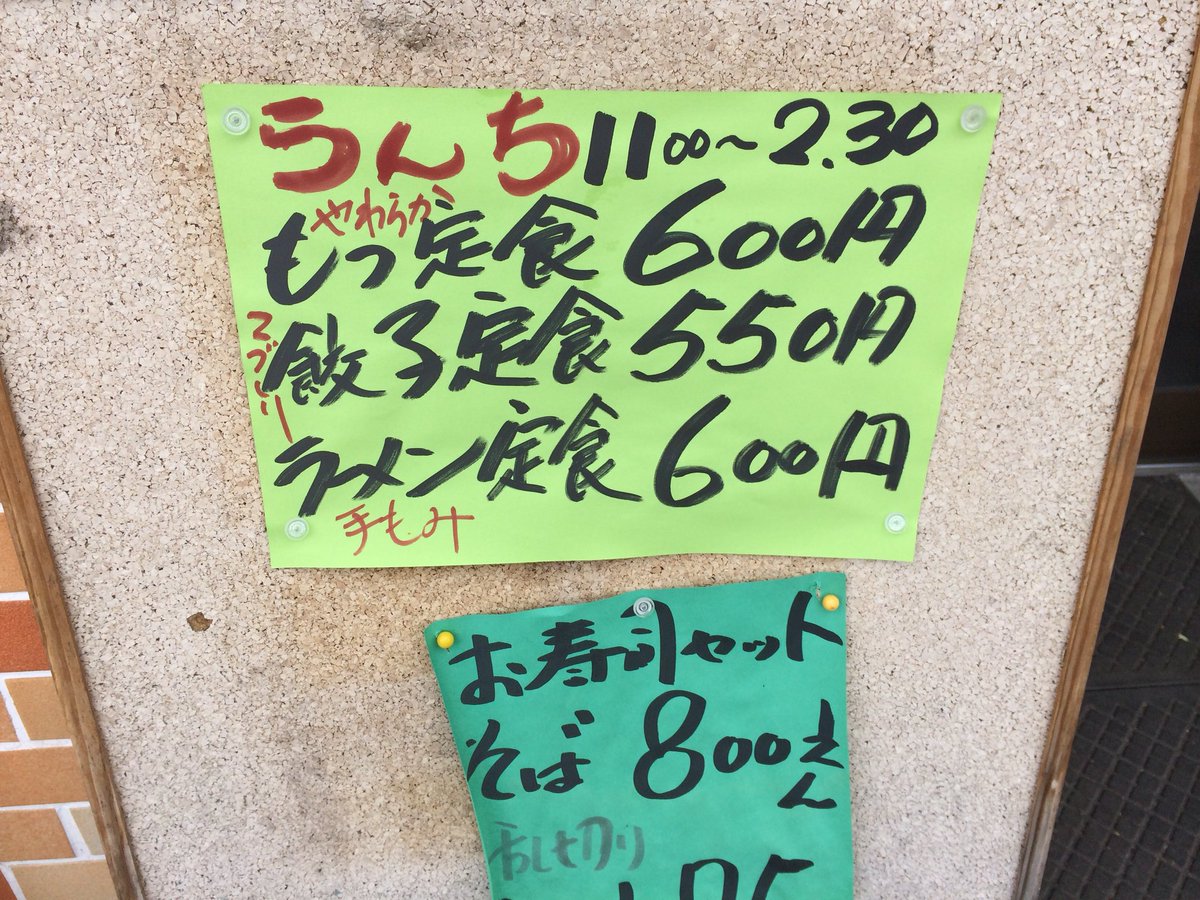 らんち 11 00〜2.30
やわらか
もつ定食 600円
てづくり
餃子定食 550円
ラメン定食 600円
手もみ
お寿司セット
そば 800えん